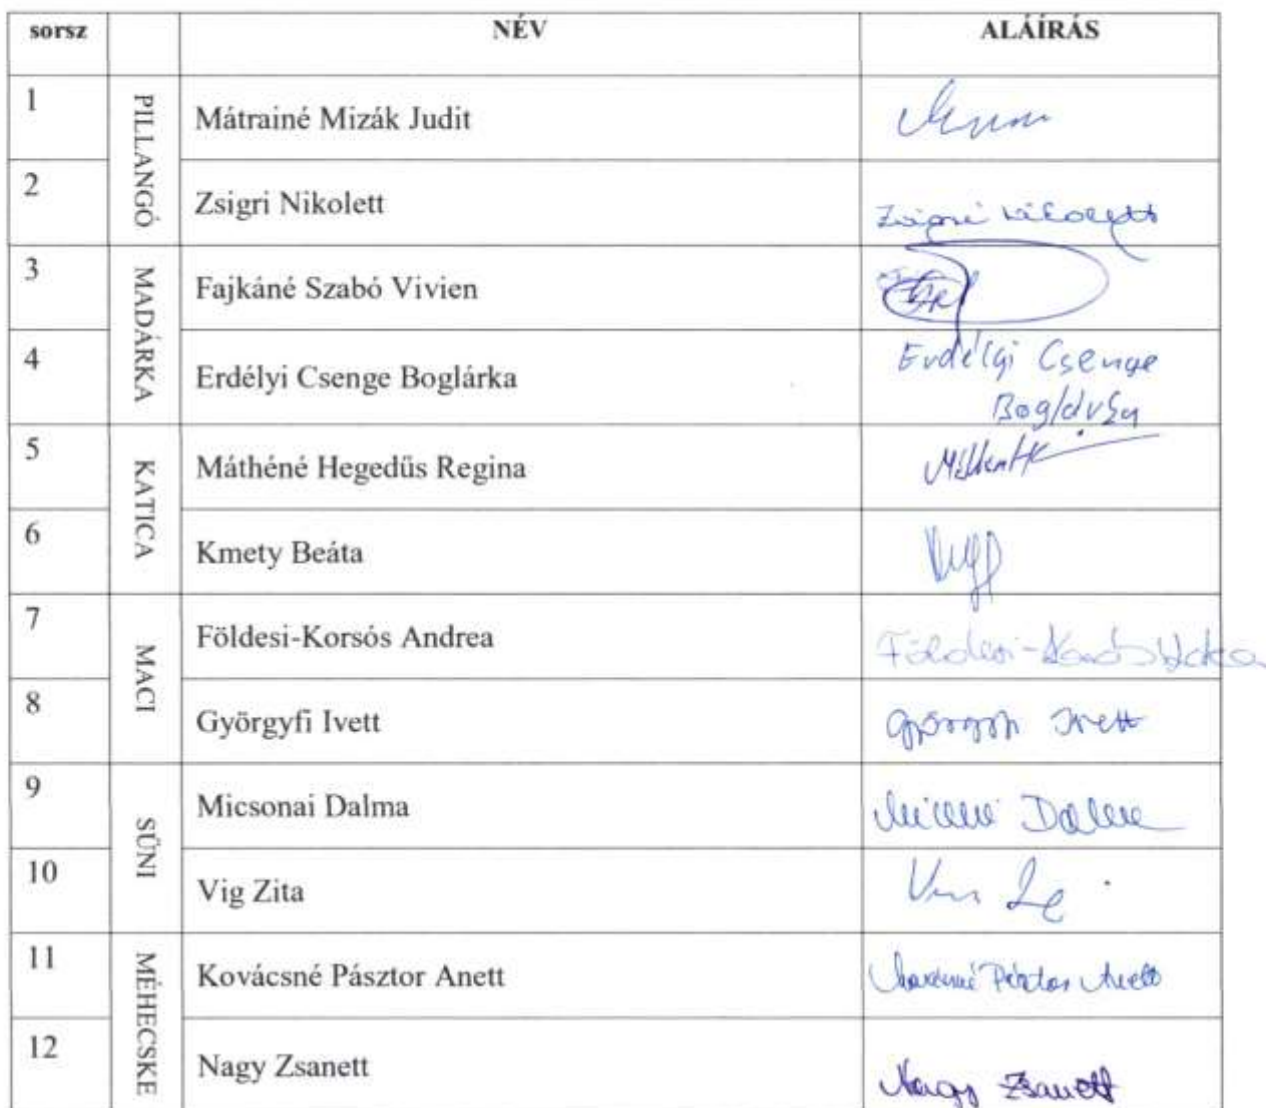 sorsz NÉV ALÁÍRÁS
PILLANGÓ
1 Mátrainé Mizák Judit
2 Zsigri Nikolett
MADÁRKA
3 Fajkáné Szabó Vivien
4 Erdélyi Csenge Boglárka Erdélyi Csenge
Boglárka
KATICA
5 Máthéné Hegedűs Regina
6 Kmety Beáta
MACI
7 Földesi-Korsós Andrea Földesi-Korsós Andrea
8 Györgyfi Ivett Györgyfi Ivett
SÜNI
9 Micsonai Dalma Dalma
10 Vig Zita
MÉHECSKE
11 Kovácsné Pásztor Anett Kovácsné Pásztor Anett
12 Nagy Zsanett Nagy Zsanett